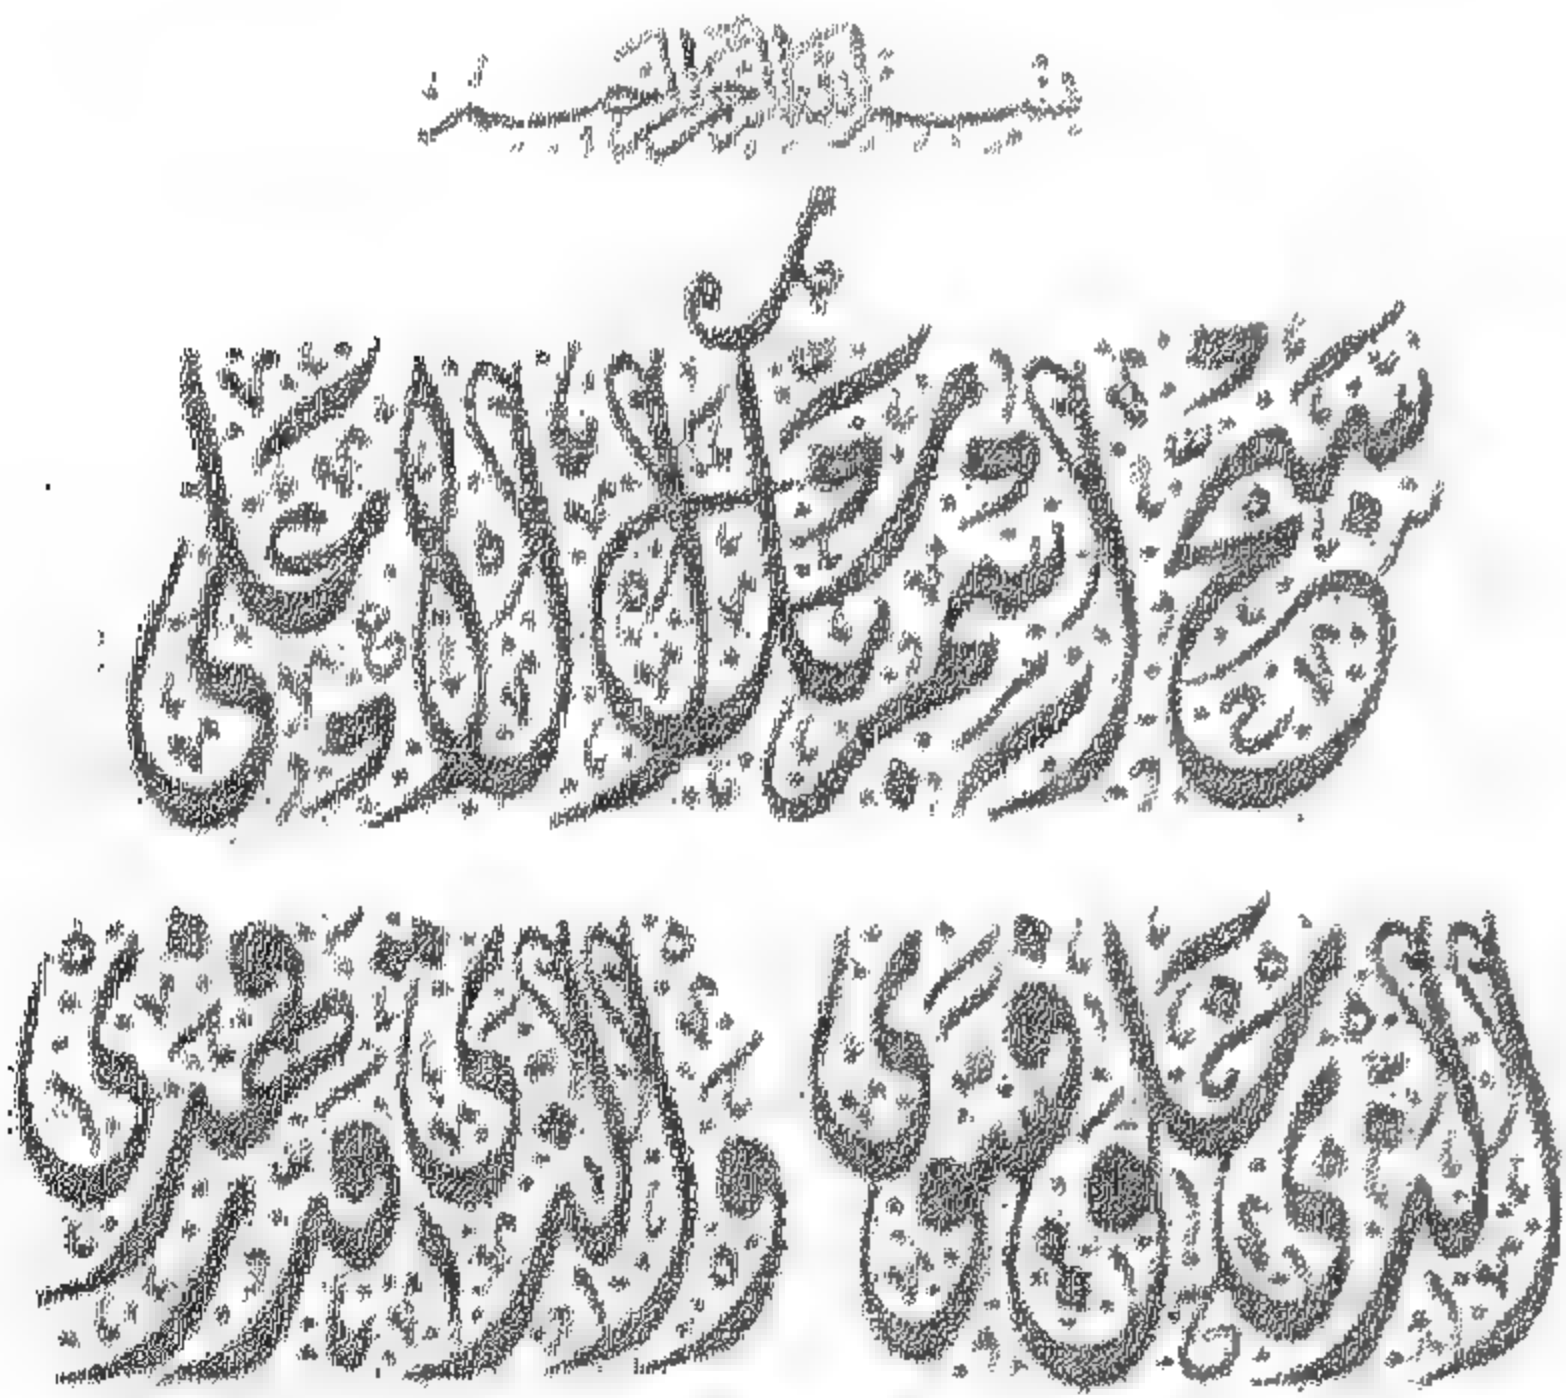 بسم الله الرحمن الرحيم
سبح اسم ربك الأعلى
الذي خلق فسوى والذي قدر فهدى